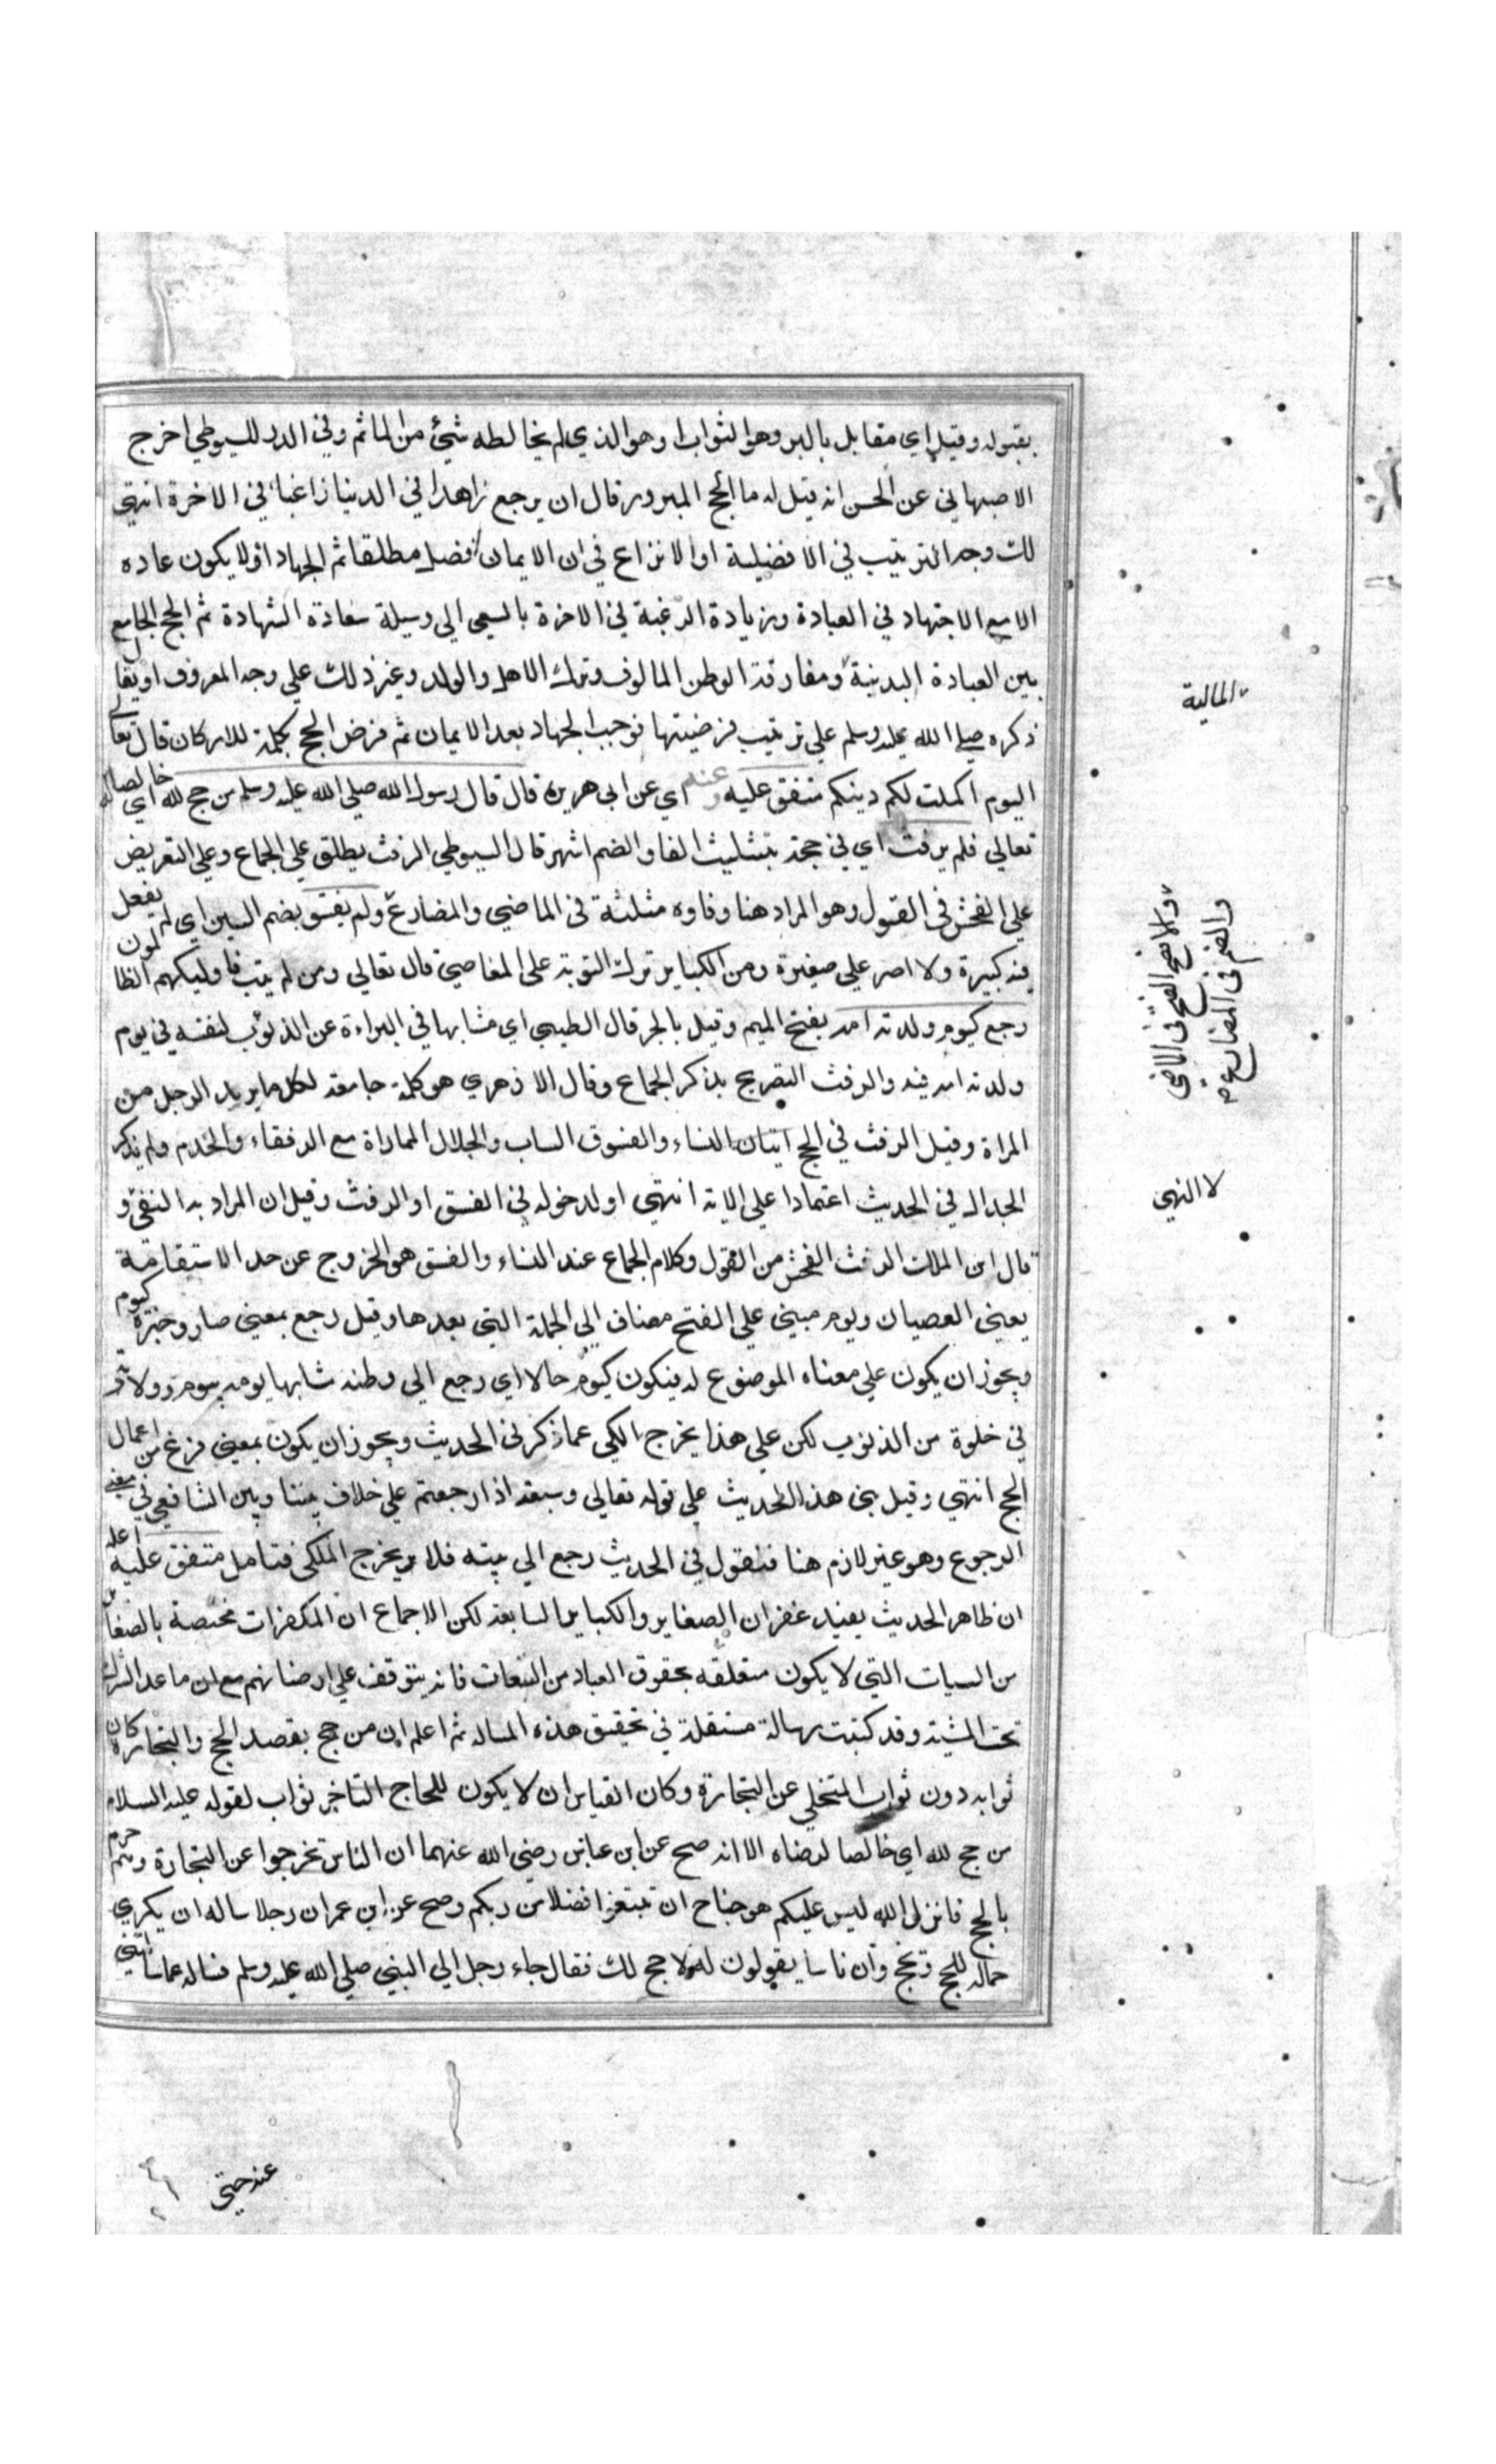 بقبوله وقيل اي مقابل بالبر وهو الثواب او هو الذي لم يخالطه شيئ من الماثم وفي الدر للسيوطي اخرج
الاصبهاني عن الحسن انه قيل له ما الحج المبرور قال ان يرجع زاهدا في الدنيا راغبا في الاخرة انتهي
لك وجه الترتيب في الافضلية اولا نزاع في ان الايمان افضل مطلقا ثم الجهاد اذ لا يكون عادة
الا مع الاجتهاد في العبادة وزيادة الرغبة في الاخرة بالسعي الي وسيلة سعادة الشهادة ثم الحج الجامع
بين العبادة البدنية ومفارقة الوطن المالوف وترك الاهل والولد وغير ذلك علي وجه المعروف او يقال
ذكره صلي الله عليه وسلم علي ترتيب فرضيتها فوجب الجهاد بعد الايمان ثم فرض الحج تكملة للاركان قال تعالي
اليوم اكملت لكم دينكم متفق عليه وعنه اي عن ابي هريرة قال قال رسول الله صلي الله عليه وسلم من حج لله اي خالصا له
تعالي فلم يرفث اي في حجة بتثليث الفا والضم اشهر قال السيوطي الرفث يطلق علي الجماع وعلي التعريض
علي الفحش في القول وهو المراد هنا وفاوه مثلثة في الماضي والمضارع ولم يفسق بضم السين اي لم يفعل
فيه كبيرة ولا اصر علي صغيرة ومن الكباير ترك التوبة علي المعاصي قال تعالي ومن لم يتب فاوليكهم الظالمون
رجع كيوم ولدته امه بفتح الميم وقيل بالجر قال الطيبي اي مشابها في البراءة عن الذنوب لنفسه في يوم
ولدته امه فيه والرفث التصريح بذكر الجماع وقال الازهري هو كلمة جامعة لكل ما يريد الرجل من
المراة وقيل الرفث في الحج اتيان النساء والفسوق الساب والجدال المماراة مع الرفقاء والخدم ولم يذكر
الجدال في الحديث اعتمادا علي الاية انتهي او لدخوله في الفسق او الرفث وقيل ان المراد به النفي و
قال ابن الملك الرفث الفحش من القول وكلام الجماع عند النساء والفسق هو الخروج عن حد الاستقامة
يعني العصيان ويوم مبني علي الفتح مضاف الي الجملة التي بعدها وقيل رجع بمعني صار وخبره كيوم
ويجوز ان يكون علي معناه الموضوع له فيكون كيوم حالا اي رجع الي وطنه مشابها يومه بيوم ولادته
في خلوه من الذنوب لكن علي هذا يخرج المكي عما ذكر في الحديث ويجوز ان يكون بمعني فرغ من اعمال
الحج انتهي وقيل بني هذا الحديث علي قوله تعالي وسبعة اذا رجعتم علي خلاف بيننا وبين الشافعي في معني
الرجوع وهو غير لازم هنا فنقول في الحديث رجع الي بيته فلا يخرج المكي فتامل متفق عليه اعلم
ان ظاهر الحديث يفيد غفران الصغاير والكباير السابقة لكن الاجماع ان المكفرات مختصة بالصغائر
من السيات التي لا يكون متعلقه بحقوق العباد من التبعات فانه يتوقف علي ارضائهم مع ان ما عدا الشرك
تحت المشية وقد كتبت رسالة مستقلة في تحقيق هذه المسالة ثم اعلم ان من حج بقصد الحج والتجارة كان
ثوابه دون ثواب المتخلي عن التجارة وكان القياس ان لا يكون للحاج التاجر ثواب لقوله عليه السلام
من حج لله اي خالصا لرضاه الا انه صح عن ابن عباس رضي الله عنهما ان الناس تحرجوا عن التجارة وهم حرم
بالحج فانزل الله ليس عليكم جناح ان تبتغوا فضلا من ربكم وصح عن ابن عمر ان رجلا ساله ان يكري
جماله للحج ويحج وان ناسا يقولون له لا حج لك فقال جاء رجل الي النبي صلي الله عليه وسلم فساله عما سالتني
المالية
والافصح الفتح في الماضي
والضم في المضارع
لا النهي
عنه حتي